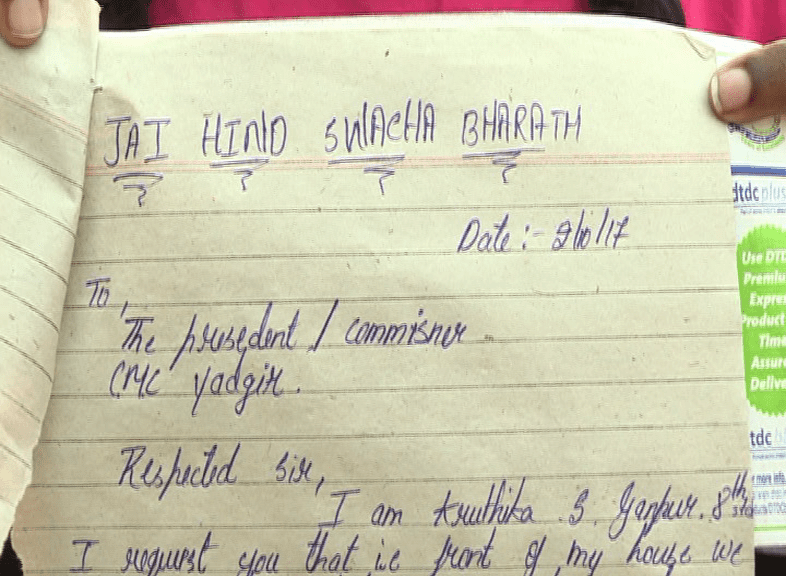 JAI HIND SWACHA BHARATH
Date :- 9/10/17
To,
The presedent / commisner
CMC yadgir.
Respected sir,
I am Kruthika S. Ganpur. 8th
I request you that i.e front of my house we
dtdc plus
Use DT
Premiu
Expre
Product
Time
Assure
Delive
tdc
more info